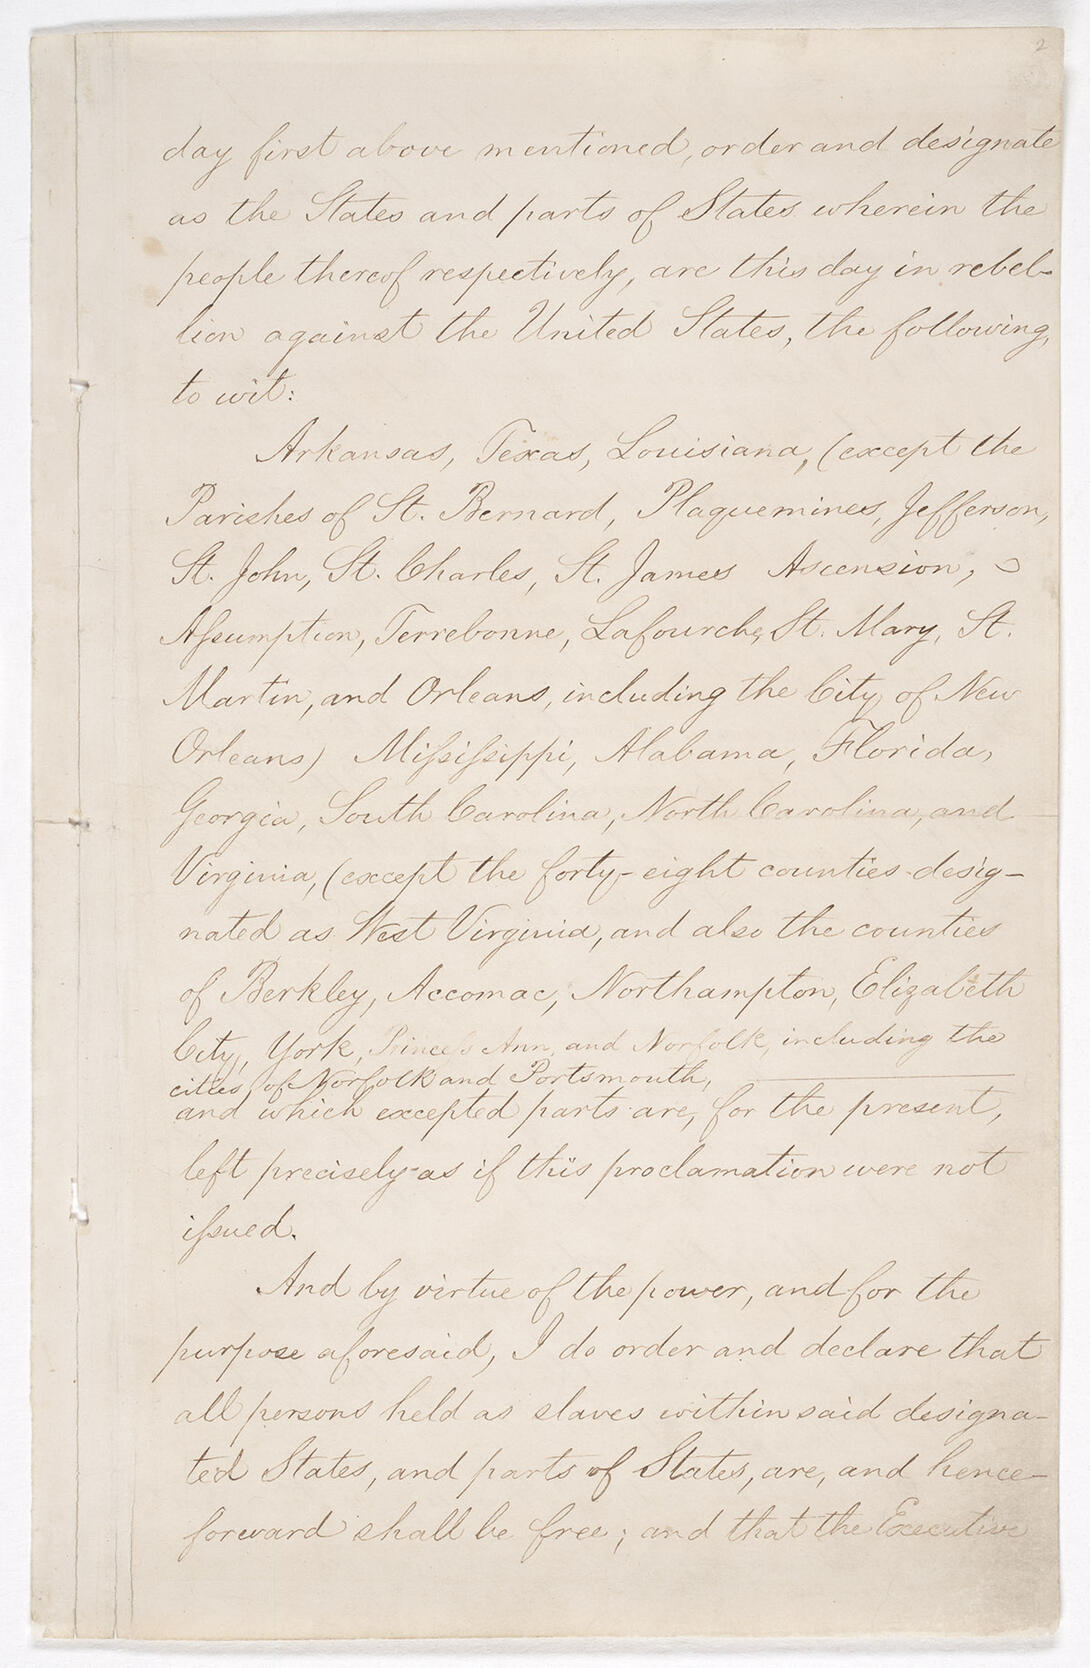 2
day first above mentioned, order and designate
as the States and parts of States wherein the
people thereof respectively, are this day in rebel-
lion against the United States, the following,
to wit:
Arkansas, Texas, Louisiana, (except the
Parishes of St. Bernard, Plaquemines, Jefferson,
St. John, St. Charles, St. James Ascension,
Assumption, Terrebonne, Lafourche, St. Mary, St.
Martin, and Orleans, including the City of New
Orleans) Mississippi, Alabama, Florida,
Georgia, South Carolina, North Carolina, and
Virginia, (except the forty-eight counties desig-
nated as West Virginia, and also the counties
of Berkley, Accomac, Northampton, Elizabeth
City, York, Princess Ann, and Norfolk, including the
cities of Norfolk and Portsmouth,
and which excepted parts are, for the present,
left precisely as if this proclamation were not
issued.
And by virtue of the power, and for the
purpose aforesaid, I do order and declare that
all persons held as slaves within said designa-
ted States, and parts of States, are, and hence-
forward shall be free; and that the Executive